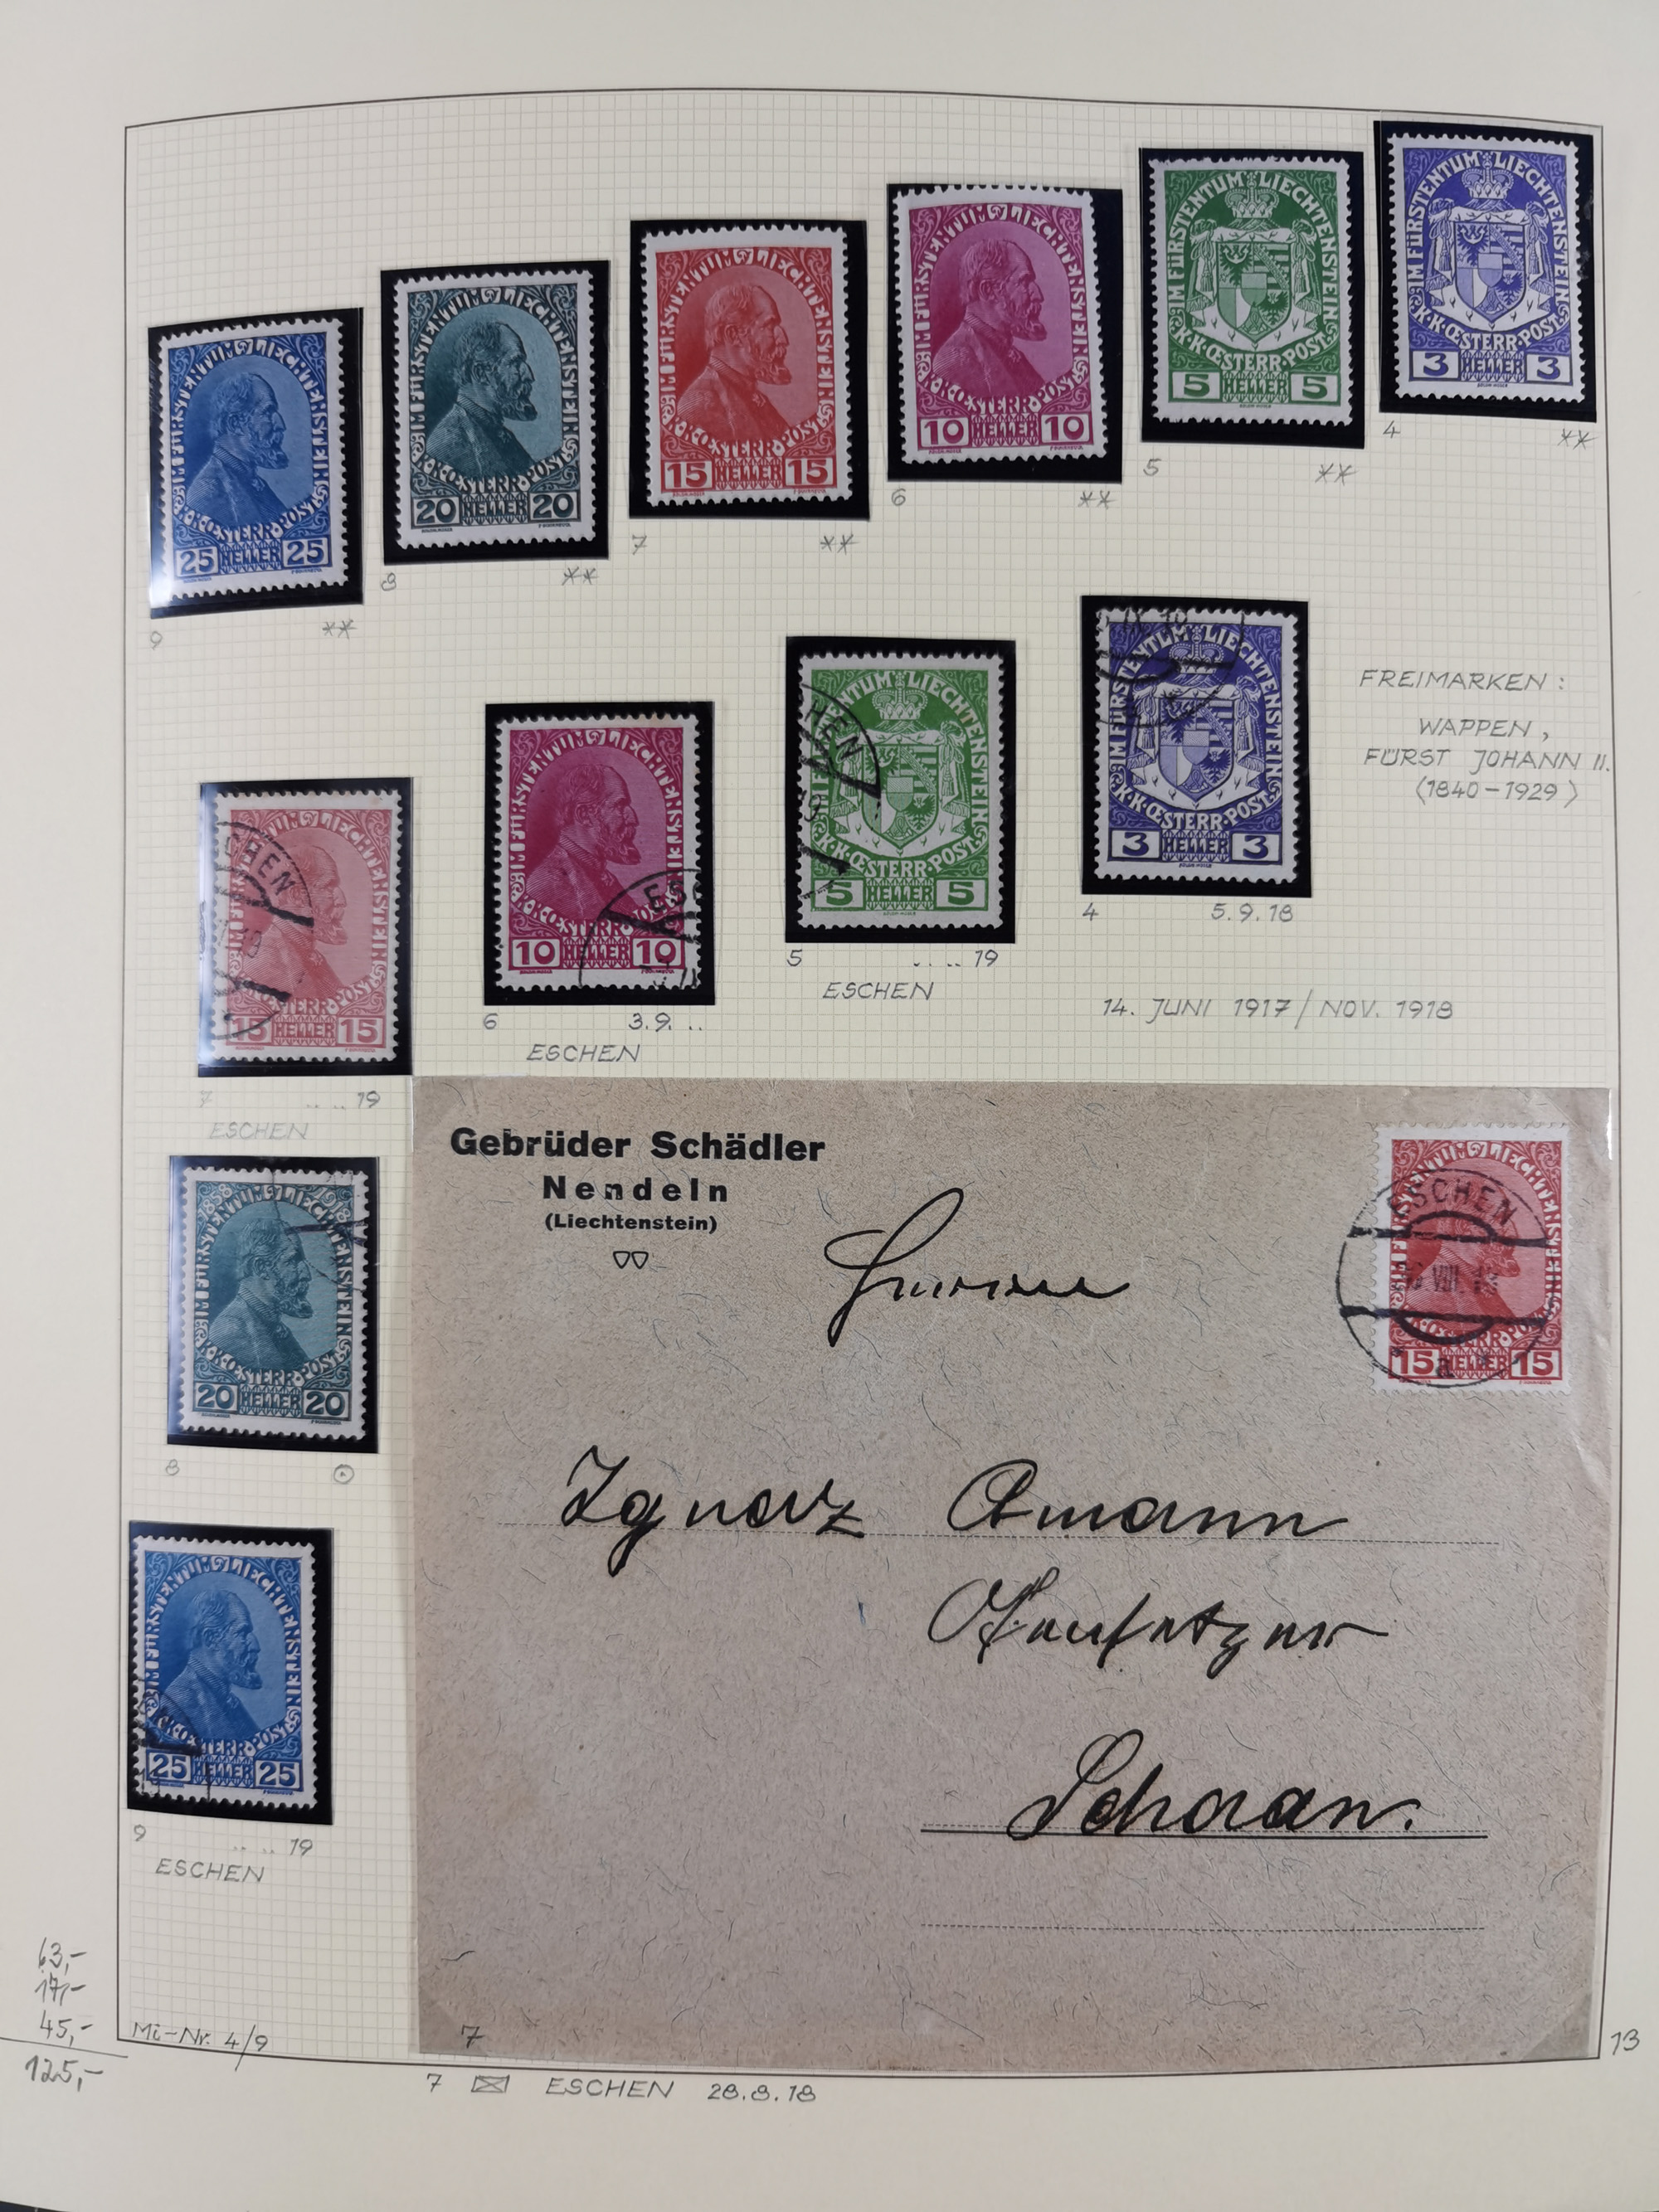 IM FÜRSTENTUM LIECHTENSTEIN
K.K. OESTERR. POST
25 HELLER 25
9
**
IM FÜRSTENTUM LIECHTENSTEIN
K.K. OESTERR. POST
20 HELLER 20
8
**
IM FÜRSTENTUM LIECHTENSTEIN
K.K. OESTERR. POST
15 HELLER 15
7
**
IM FÜRSTENTUM LIECHTENSTEIN
K.K. OESTERR. POST
10 HELLER 10
6
**
IM FÜRSTENTUM LIECHTENSTEIN
K.K. OESTERR. POST
5 HELLER 5
5
**
IM FÜRSTENTUM LIECHTENSTEIN
K.K. OESTERR. POST
3 HELLER 3
4
**
FREIMARKEN:
WAPPEN,
FÜRST JOHANN II.
(1840-1929)
IM FÜRSTENTUM LIECHTENSTEIN
K.K. OESTERR. POST
3 HELLER 3
4 5.9.18
LIECHTENSTEIN
K.K. OESTERR. POST
5 HELLER 5
5 .. .. 19
ESCHEN
IM FÜRSTENTUM LIECHTENSTEIN
K.K. OESTERR. POST
10 HELLER 10
6 3.9. ..
ESCHEN
14. JUNI 1917/NOV. 1918
LIECHTENSTEIN
15 HELLER 15
7 .. .. 19
ESCHEN
1858 1918
IM FÜRSTENTUM LIECHTENSTEIN
K.K. OESTERR. POST
20 HELLER 20
8 ⊙
IM FÜRSTENTUM LIECHTENSTEIN
K.K. OESTERR. POST
25 HELLER 25
9 .. .. 19
ESCHEN
Gebrüder Schädler
Nendeln
(Liechtenstein)
ESCHEN
VIII. 18
a
15 HELLER 15
Herrn
Ignaz Amann
Schaan.
7
63,-
17,-
45,-
125,-
Mi-Nr. 4/9
13
7 ESCHEN 28.8.18